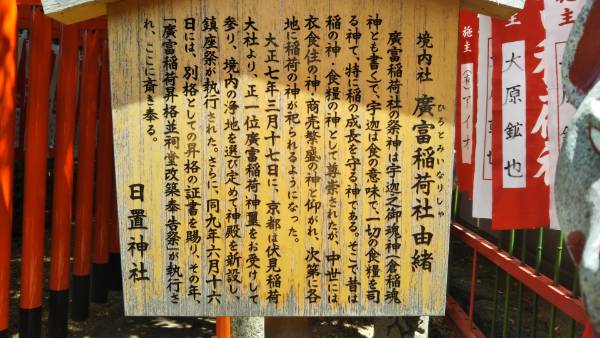 境内社 廣富稲荷社由緒
ひろとみいなりしゃ
廣富稲荷社の祭神は宇迦之御魂神(倉稲魂
神とも書く)で、宇迦は食の意味で、一切の食糧を司
る神で、特に稲の成長を守る神である。そこで昔は
稲の神・食糧の神として尊崇されたが、中世には
衣食住の神、商売繁盛の神と仰がれ、次第に各
地に稲荷の神が祀られるようになった。
大正七年三月十七日に、京都は伏見稲荷
大社より、正一位廣富稲荷神璽をお受けして
参り、境内の浄地を選び定めて神殿を新設し、
鎮座祭が執行された。さらに、同九年六月十六
日には、別格としての昇格の証書を賜り、その年、
「廣富稲荷昇格並祠堂改築奉告祭」が執行さ
れ、ここに斎き奉る。
日置神社
施主
大原鉱也
施主
(有)アイオ
施主